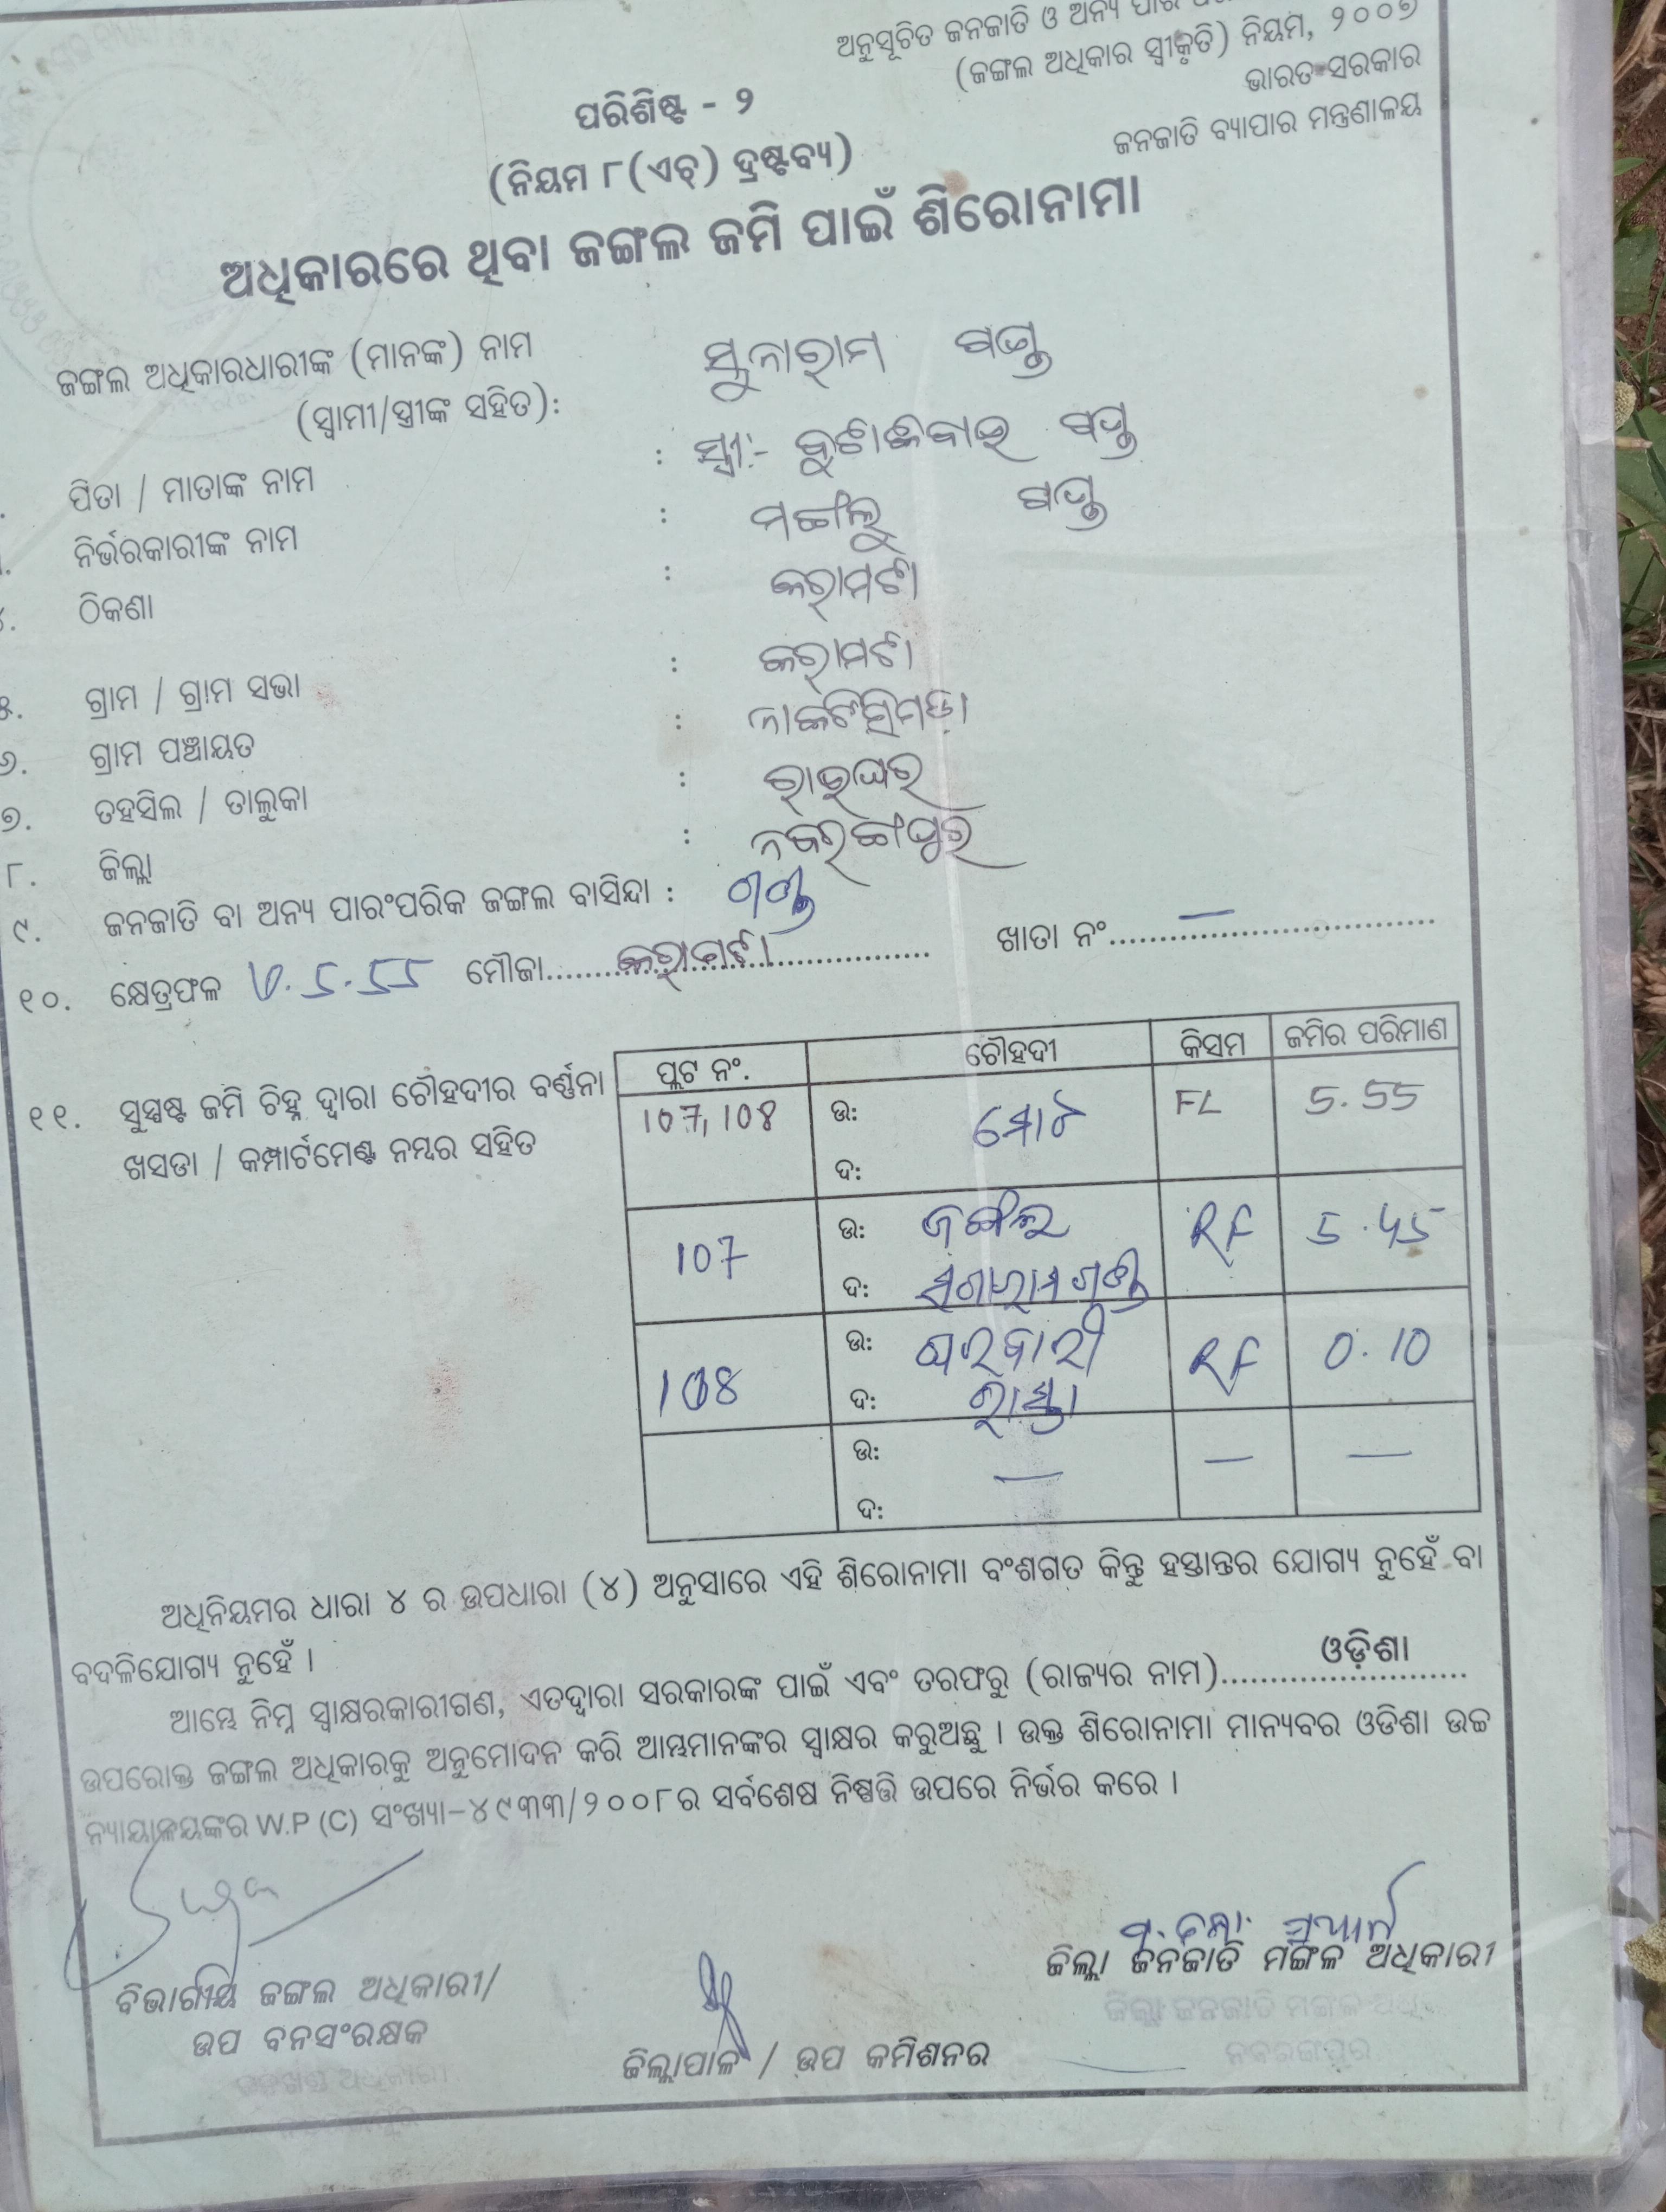 ଅନୁସୂଚିତ ଜନଜାତି ଓ ଅନ୍ୟ
(ଜଙ୍ଗଲ ଅଧିକାର ସ୍ୱୀକୃତି) ନିୟମ, ୨୦୦୭
ଭାରତ ସରକାର
ଜନଜାତି ବ୍ୟାପାର ମନ୍ତ୍ରଣାଳୟ
ପରିଶିଷ୍ଟ - ୨
(ନିୟମ ୮(ଏଚ୍) ଦ୍ରଷ୍ଟବ୍ୟ)
ଅଧିକାରରେ ଥିବା ଜଙ୍ଗଲ ଜମି ପାଇଁ ଶିରୋନାମା
ଜଙ୍ଗଲ ଅଧିକାରଧାରୀଙ୍କ (ମାନଙ୍କ) ନାମ ସୁନାରାମ ଗଣ୍ଡ
(ସ୍ୱାମୀ/ସ୍ତ୍ରୀଙ୍କ ସହିତ):
: ସ୍ତ୍ରୀ:- ଗଣ୍ଡ
ପିତା / ମାତାଙ୍କ ନାମ : ଗଣ୍ଡ
ନିର୍ଭରକାରୀଙ୍କ ନାମ : କରାମଟା
୪. ଠିକଣା : କରାମଟା
୫. ଗ୍ରାମ / ଗ୍ରାମ ସଭା :
୬. ଗ୍ରାମ ପଞ୍ଚାୟତ : ରାଇଘର
୭. ତହସିଲ / ତାଲୁକା : ନବରଙ୍ଗପୁର
୮. ଜିଲ୍ଲା
୯. ଜନଜାତି ବା ଅନ୍ୟ ପାରଂପରିକ ଜଙ୍ଗଲ ବାସିନ୍ଦା : ଗଣ୍ଡ
୧୦. କ୍ଷେତ୍ରଫଳ 5.55 ମୌଜା..... କରାମଟା ..... ଖାତା ନଂ..... — .....
୧୧. ସୁସ୍ପଷ୍ଟ ଜମି ଚିହ୍ନ ଦ୍ୱାରା ଚୌହଦୀର ବର୍ଣ୍ଣନା
ଖସଡା / କମ୍ପାର୍ଟମେଣ୍ଟ ନମ୍ବର ସହିତ
ପ୍ଲଟ ନଂ. ଚୌହଦୀ କିସମ ଜମିର ପରିମାଣ
107, 108 ଉ: ମୋଟ FL 5.55
ଦ:
107 ଉ: ଜଙ୍ଗଲ RF 5.45
ଦ: ଗଣ୍ଡ
108 ଉ: ଘରବାରୀ RF 0.10
ଦ: ରାସ୍ତା
ଉ: — — —
ଦ:
ଅଧିନିୟମର ଧାରା ୪ ର ଉପଧାରା (୪) ଅନୁସାରେ ଏହି ଶିରୋନାମା ବଂଶଗତ କିନ୍ତୁ ହସ୍ତାନ୍ତର ଯୋଗ୍ୟ ନୁହେଁ ବା
ବଦଳିଯୋଗ୍ୟ ନୁହେଁ ।
ଆମ୍ଭେ ନିମ୍ନ ସ୍ୱାକ୍ଷରକାରୀଗଣ, ଏତଦ୍ୱାରା ସରକାରଙ୍କ ପାଇଁ ଏବଂ ତରଫରୁ (ରାଜ୍ୟର ନାମ)..... ଓଡ଼ିଶା .....
ଉପରୋକ୍ତ ଜଙ୍ଗଲ ଅଧିକାରକୁ ଅନୁମୋଦନ କରି ଆମ୍ଭମାନଙ୍କର ସ୍ୱାକ୍ଷର କରୁଅଛୁ । ଉକ୍ତ ଶିରୋନାମା ମାନ୍ୟବର ଓଡିଶା ଉଚ୍ଚ
ନ୍ୟାୟାଳୟଙ୍କର W.P (C) ସଂଖ୍ୟା-୪୯୩୩/୨୦୦୮ର ସର୍ବଶେଷ ନିଷ୍ପତ୍ତି ଉପରେ ନିର୍ଭର କରେ ।
ବିଭାଗୀୟ ଜଙ୍ଗଲ ଅଧିକାରୀ/
ଉପ ବନସଂରକ୍ଷକ
ଜିଲ୍ଲାପାଳ / ଉପ କମିଶନର
ଜିଲ୍ଲା ଜନଜାତି ମଙ୍ଗଳ ଅଧିକାରୀ
ଜିଲ୍ଲା ଜନଜାତି ମଙ୍ଗଳ
ନବରଙ୍ଗପୁର